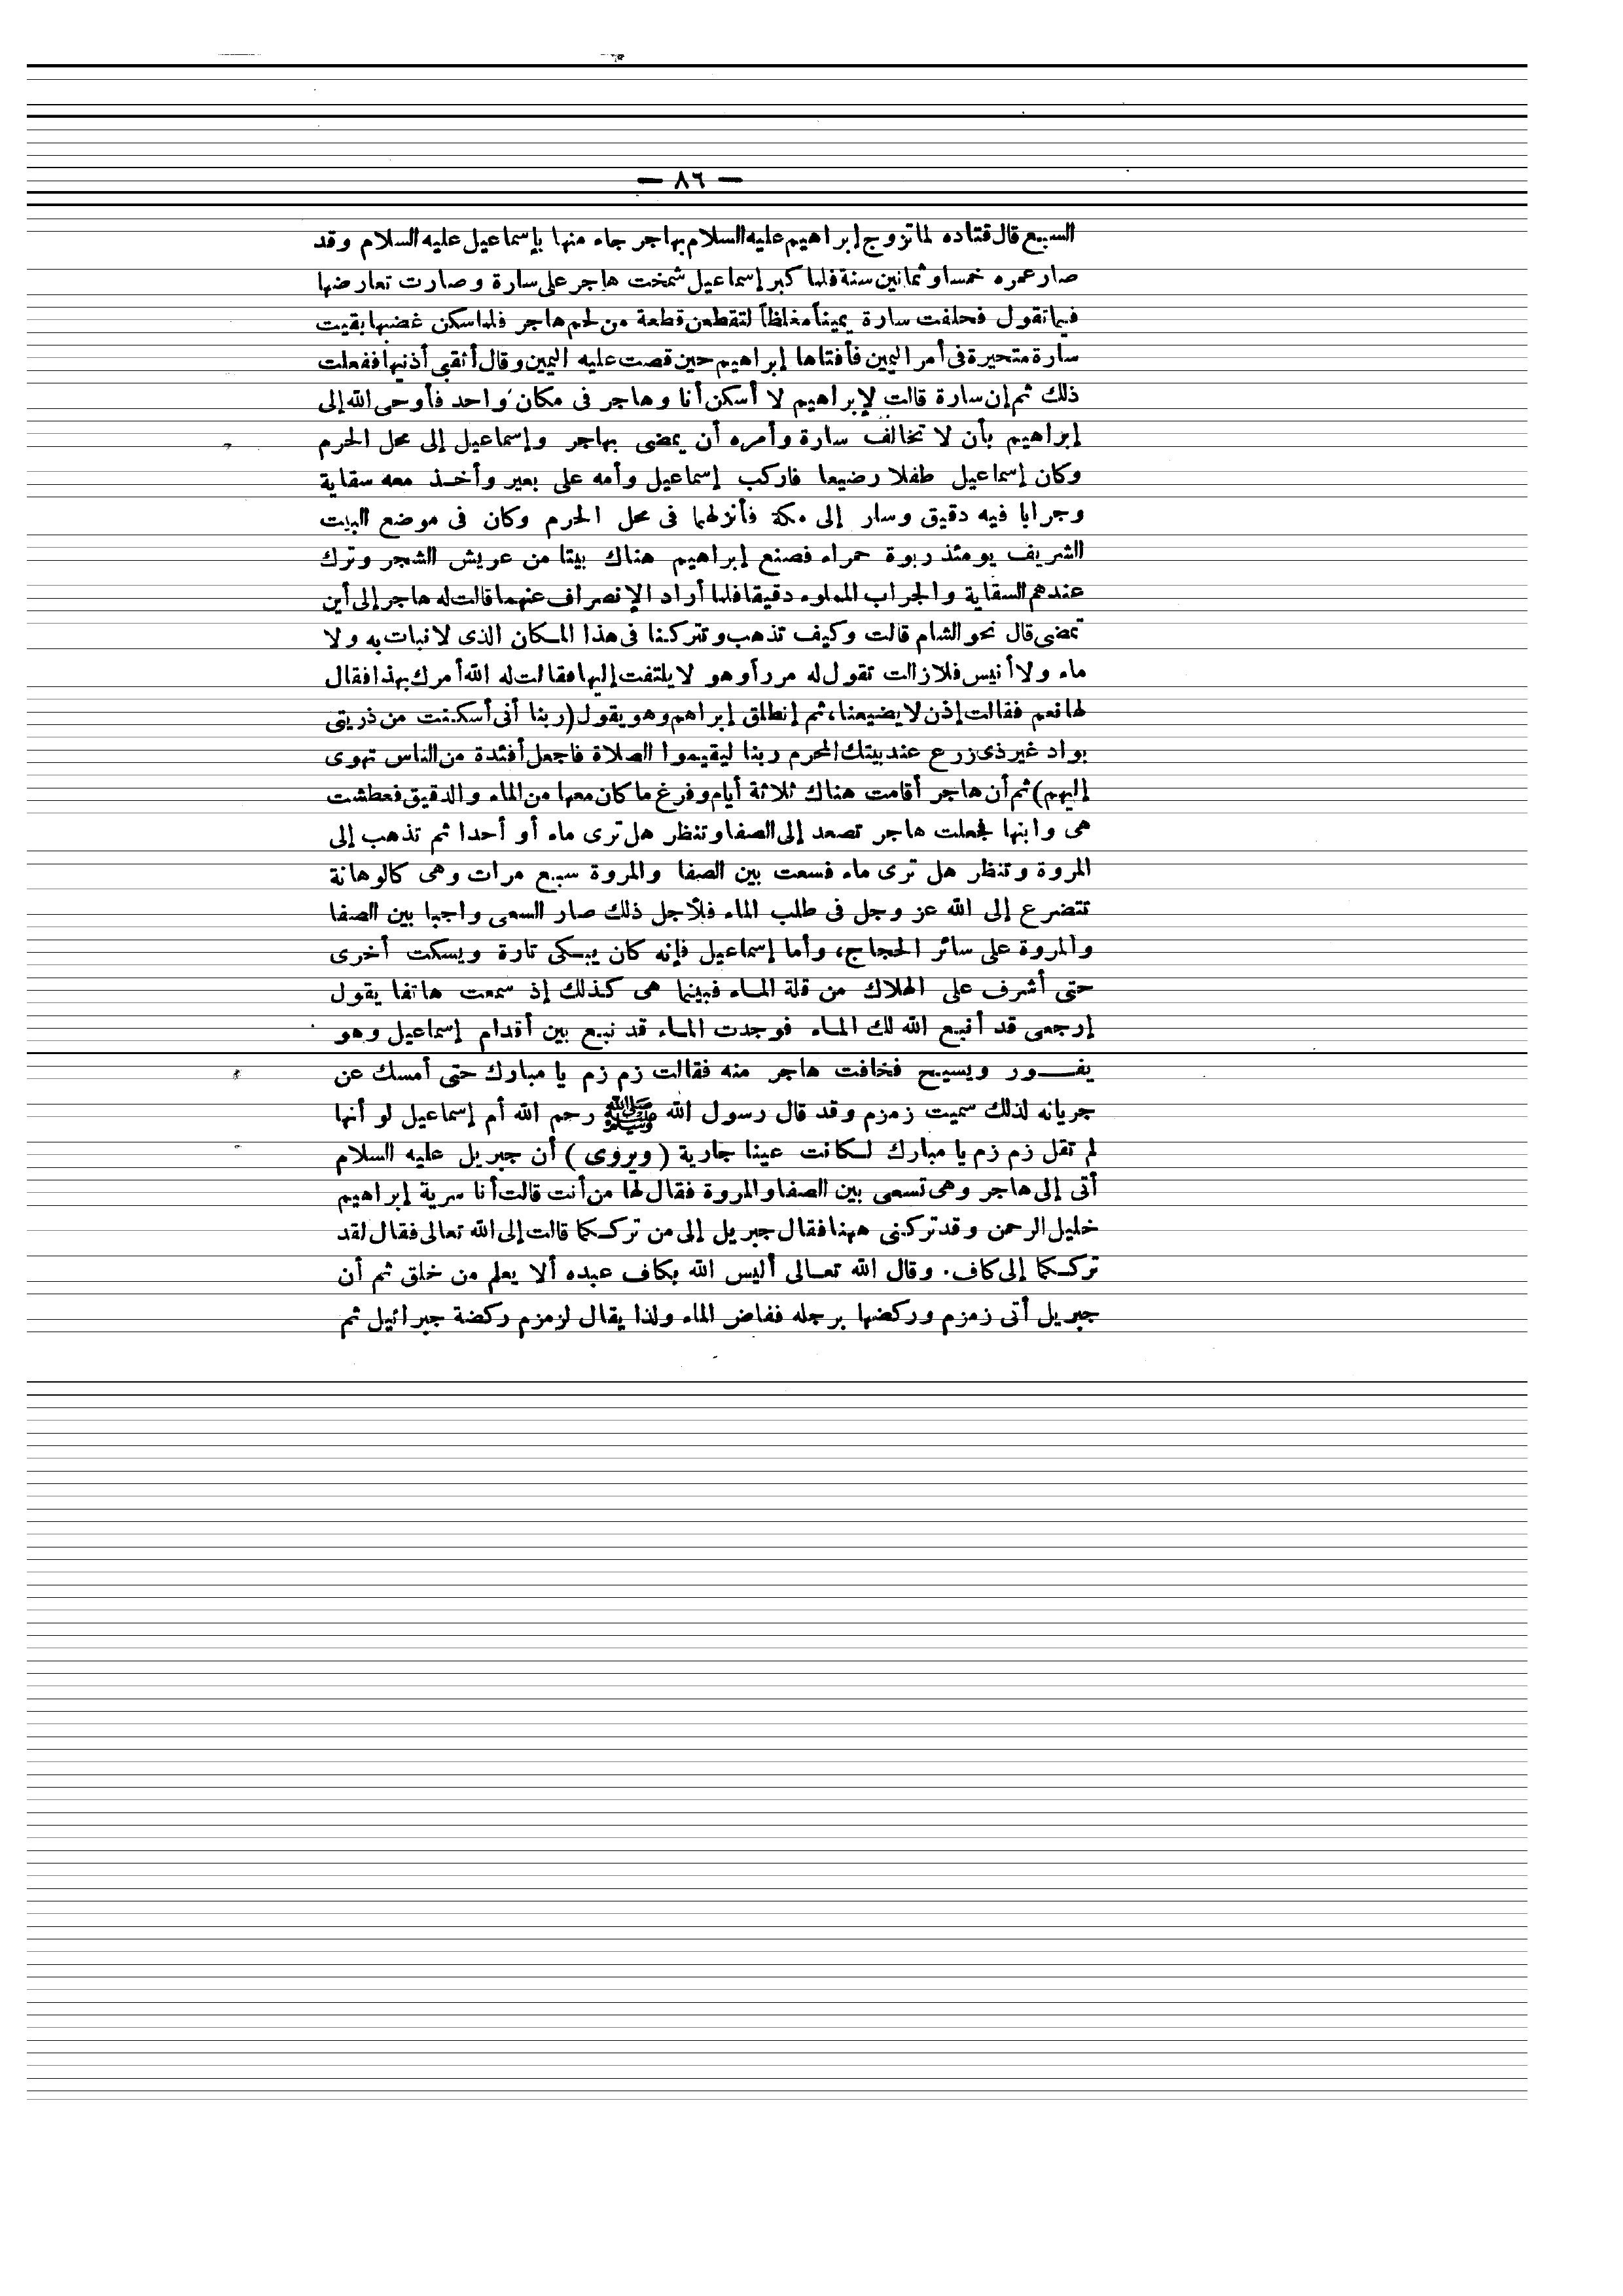 — ٨٦ —
السبع قال قتاده لما تزوج إبراهيم عليه السلام بهاجر جاء منها بإسماعيل عليه السلام وقد
صار عمره خمسا وثمانين سنة فلما كبر إسماعيل شمخت هاجر على سارة وصارت تعارضها
فيما تقول فحلفت سارة يميناً مغلظاً لتقطعن قطعة من لحم هاجر فلما سكن غضبها بقيت
سارة متحيرة فى أمر اليمين فأفتاها إبراهيم حين قصت عليه اليمين وقال أثقبى أذنيها ففعلت
ذلك ثم إن سارة قالت لإبراهيم لا أسكن أنا وهاجر فى مكان واحد فأوحى الله إلى
إبراهيم بأن لا تخالف سارة وأمره أن يمضى بهاجر وإسماعيل إلى محل الحرم
وكان إسماعيل طفلا رضيعا فاركب إسماعيل وأمه على بعير وأخذ معه سقاية
وجرابا فيه دقيق وسار إلى مكة فأنزلهما فى محل الحرم وكان فى موضع البيت
الشريف يومئذ ربوة حمراء فصنع إبراهيم هناك بيتا من عريش الشجر وترك
عندهم السقاية والجراب المملوء دقيقا فلما أراد الإنصراف عنهما قالت له هاجر إلى أين
تمضى قال نحو الشام قالت وكيف تذهب وتتركنا فى هذا المكان الذى لا نبات به ولا
ماء ولا أنيس فلا زالت تقول له مررأ وهو لا يلتفت إليها فقالت له الله أمرك بهذا فقال
لها نعم فقالت إذن لا يضيعنا، ثم إنطلق إبراهم وهو يقول (ربنا أنى أسكنت من ذريتى
بواد غير ذى زرع عند بيتك المحرم ربنا ليقيموا الصلاة فاجعل أفئدة من الناس تهوى
إليهم) ثم أن هاجر أقامت هناك ثلاثة أيام وفرغ ما كان معها من الماء والدقيق فعطشت
هى وابنها فجعلت هاجر تصعد إلى الصفا وتنظر هل ترى ماء أو أحدا ثم تذهب إلى
المروة وتنظر هل ترى ماء فسعت بين الصفا والمروة سبع مرات وهى كالوهانة
تتضرع إلى الله عز وجل فى طلب الماء فلأجل ذلك صار السعى واجبا بين الصفا
والمروة على سائر الحجاج، وأما إسماعيل فإنه كان يبكى تارة ويسكت أخرى
حتى أشرف على الهلاك من قلة الماء فبينما هى كذلك إذ سمعت هاتفا يقول
إرجعى قد أنبع الله لك الماء فوجدت الماء قد نبع بين أقدام إسماعيل وهو
يفور ويسيح فخافت هاجر منه فقالت زم زم يا مبارك حتى أمسك عن
جريانه لذلك سميت زمزم وقد قال رسول الله ﷺ رحم الله أم إسماعيل لو أنها
لم تقل زم زم يا مبارك لكانت عينا جارية (ويروى) أن جبريل عليه السلام
أتى إلى هاجر وهى تسعى بين الصفا والمروة فقال لها من أنت قالت أنا سرية إبراهيم
خليل الرحمن وقد تركنى ههنا فقال جبريل إلى من تركـكما قالت إلى الله تعالى فقال لقد
تركـكما إلى كاف. وقال الله تعالى أليس الله بكاف عبده ألا يعلم من خلق ثم أن
جبريل أتى زمزم وركضها برجله ففاض الماء ولذا يقال لزمزم ركضة جبرائيل ثم